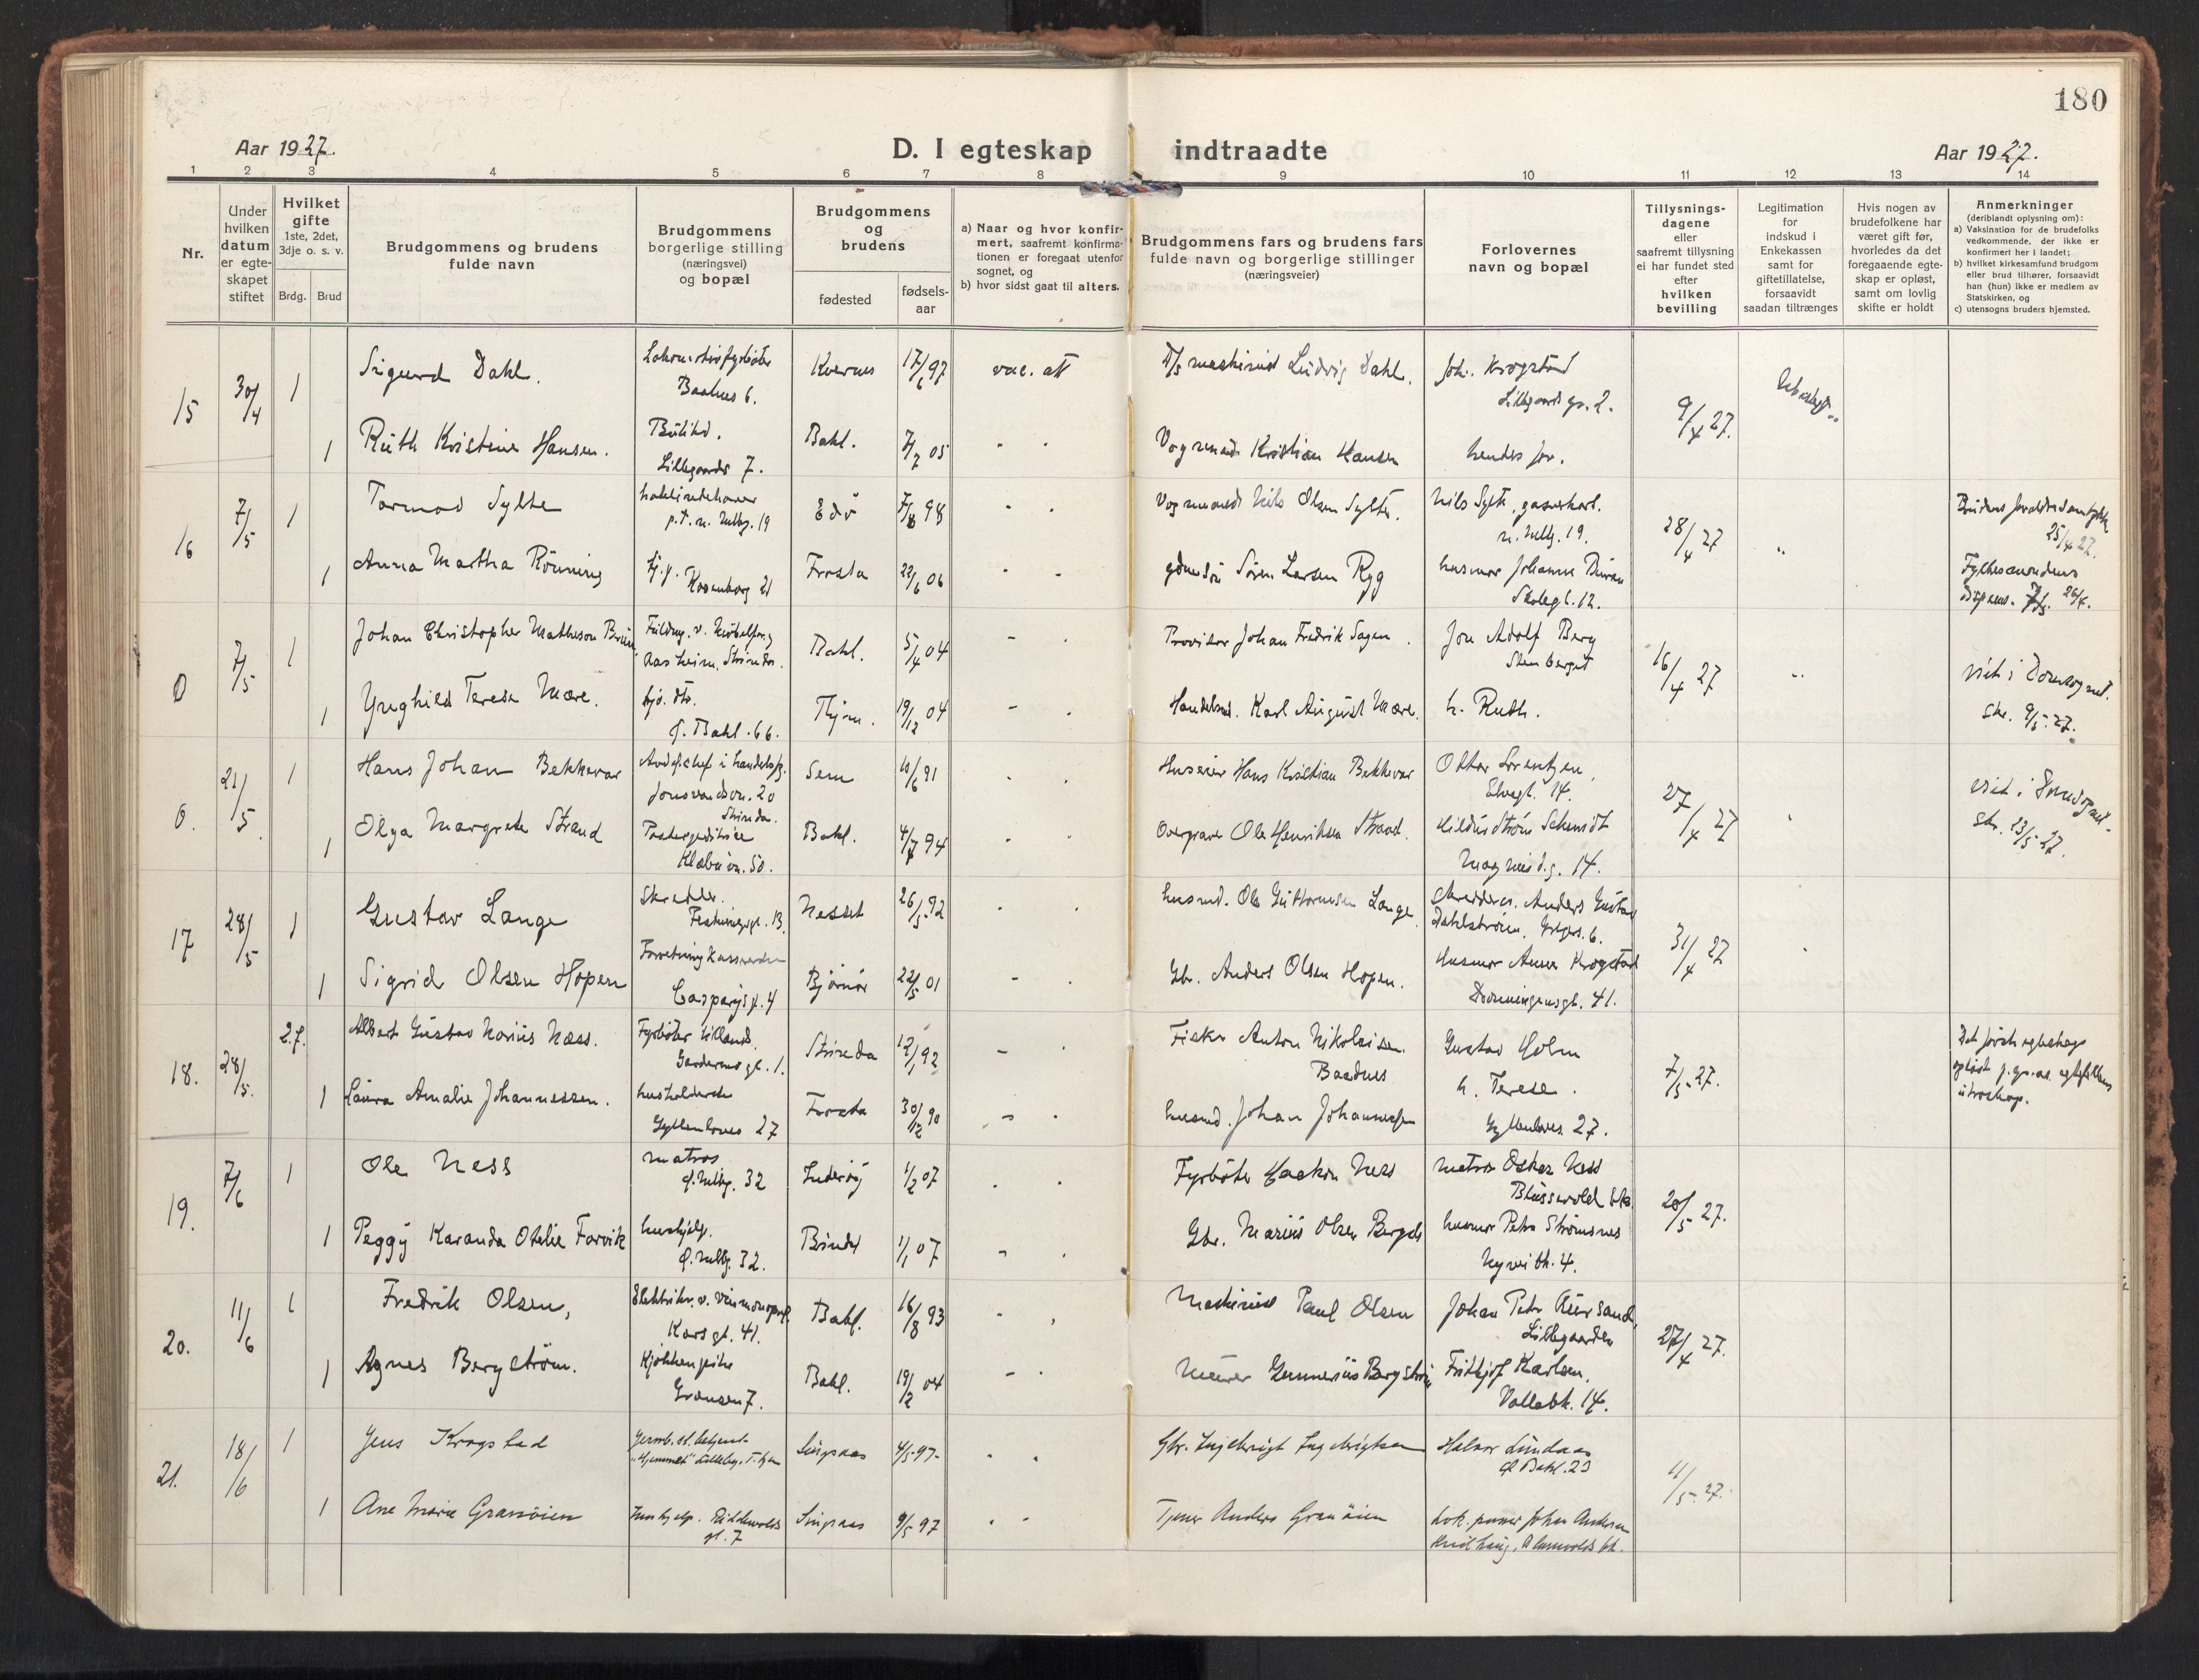 180
Aar 1927.
D. I egteskap indtraadte
Aar 1927.
1 2 3 4 5 6 7 8 9 10 11 12 13 14
Nr.
Under hvilken datum er egteskapet stiftet
Hvilket gifte 1ste, 2det, 3dje o. s. v.
Brdg. Brud
Brudgommens og brudens fulde navn
Brudgommens borgerlige stilling (næringsvei) og bopæl
Brudgommens og brudens
fødested
fødselsaar
a) Naar og hvor konfirmert, saafremt konfirmationen er foregaat utenfor sognet, og
b) hvor sidst gaat til alters.
Brudgommens fars og brudens fars fulde navn og borgerlige stillinger (næringsveier)
Forlovernes navn og bopæl
Tillysningsdagene eller saafremt tillysning ei har fundet sted efter hvilken bevilling
Legitimation for indskud i Enkekassen samt for giftetillatelse, forsaavidt saadan tiltrænges
Hvis nogen av brudefolkene har været gift før, hvorledes da det foregaaende egteskap er opløst, samt om lovlig skifte er holdt
Anmerkninger (deriblandt oplysning om):
a) Vaksination for de brudefolks vedkommende, der ikke er konfirmert her i landet;
b) hvilket kirkesamfund brudgom eller brud tilhører, forsaavidt han (hun) ikke er medlem av Statskirken, og
c) utensogns bruders hjemsted.
15 30/4 1 Sigurd Dahl. Lokomotivfyrbøter Baahus 6. Kvernes 17/6 97 vac. att D/s maskinist Ludvig Dahl. Joh. Krogstad Lillegaards gr. 2. 9/4 27.
1 Ruth Kristine Hansen. Lillegaards 7. Bakl. 7/7 05 Vognmand Kristian Hansen hendes for.
16 7/5 1 Tormod Sylte p.t. n. Mellbg. 19 Edö 7/8 98 Vognmand Nils Olsen Sylte. Nils Sylte, n. Mellbg. 19. 28/4 27 25/4 27.
1 Anna Martha Rönning Rosenborg 21 Frosta 22/6 06 Sören Larsen Ryg husmor Johanne Skolegt. 12. Fylkesmandens dispens. 26/4.
0 7/5 1 Johan Christopher Matheson Aasheim, Strinda. Bakl. 5/4 04 Provisor Johan Fredrik Sagen. Jon Adolf Berg Stenberget 16/4 27 viet i Domsognet.
1 Ynghild Terese Mære. ö. Bakl. 66. Thjem. 19/12 04 Handelsmd. Karl August Mære. h. Ruth. skr. 9/5-27.
0. 21/5 1 Hans Johan Bekkevar Jonsvandsvn. 20 Strinda. Sem 10/6 91 Huseier Hans Kristian Bekkevar Ottar Lorentzen, Elvegt. 14. 27/4 27
1 Olga Margrete Strand Postexpeditrice Klæbuvn. 50. Bakl. 4/7 94 Overgraver Ole Henriksen Strand. Hildur Ström Schmidt Magnus d.g. 14. skr. 23/5-27.
17 28/5 1 Gustav Lange Skredder. Festningsgt. 13. Nesset 26/5 92 husmd. Ole Guttormsen Lange Anders Gustav Dahlström, 6. 31/4 27
1 Sigrid Olsen Hopen Casparisg. 4 Bjørnör 22/5 01 Gbr. Anders Olsen Hopen. Husmor Anna Krogstad Dronningensgt. 41.
18. 28/5. 2.f. Albert Gustav Marius Næss. Fyrböter Gardermosgt. 1. Strinda 12/1 92 Fisker Anton Nikolaisen Baadnes Gustav Holm h. Terese. 7/5-27. Det förste egteskap oplöst p.gr.av. utroskap.
1 Laura Amalie Johannessen. husholderske Gyldenlöves 27 Frosta 30/12 90 husmd. Johan Johannessen Gyldenlöves 27.
19. 7/6 1 Ole Ness matros ö. Mellbg. 32 Inderöy 1/2 07 Fyrböter Haakon Ness matros Oskar Ness Bligssvold 20/5 27.
1 Peggy Karanda Otelie Forvik hushjelp. ö. Mellbg. 32. Bindal 1/1 07 Gbr. Marius Olsen husmor Petra Strömsnes Nyveibk. 4.
20. 11/6 1 Fredrik Olsen, Elektriker v. Vinmonopol. Korsgt. 41. Bakl. 16/8 93 Maskinist Paul Olsen Johan Petr Aursand, Lillegaarden 27/4 27.
1 Agnes Bergström. Kjökkenpike Grænsen 7. Bakl. 19/2 04 Murer Gunnerius Bergström Fritkjof Karlsen, Vollabk. 14.
21. 18/6 1 Jens Krogstad "Hjemmet" Singsaas 4/5-97- Gbr. Ingebrigt Ingebrigtsen Halvor Lundaas Ö Bakl. 23 11/5-27.
1 Ane Marie Granöien Hushjelp. gt. 7 Singsaas 9/5 97 Tjener Anders Granöien Lok. pusser Johan Andersen